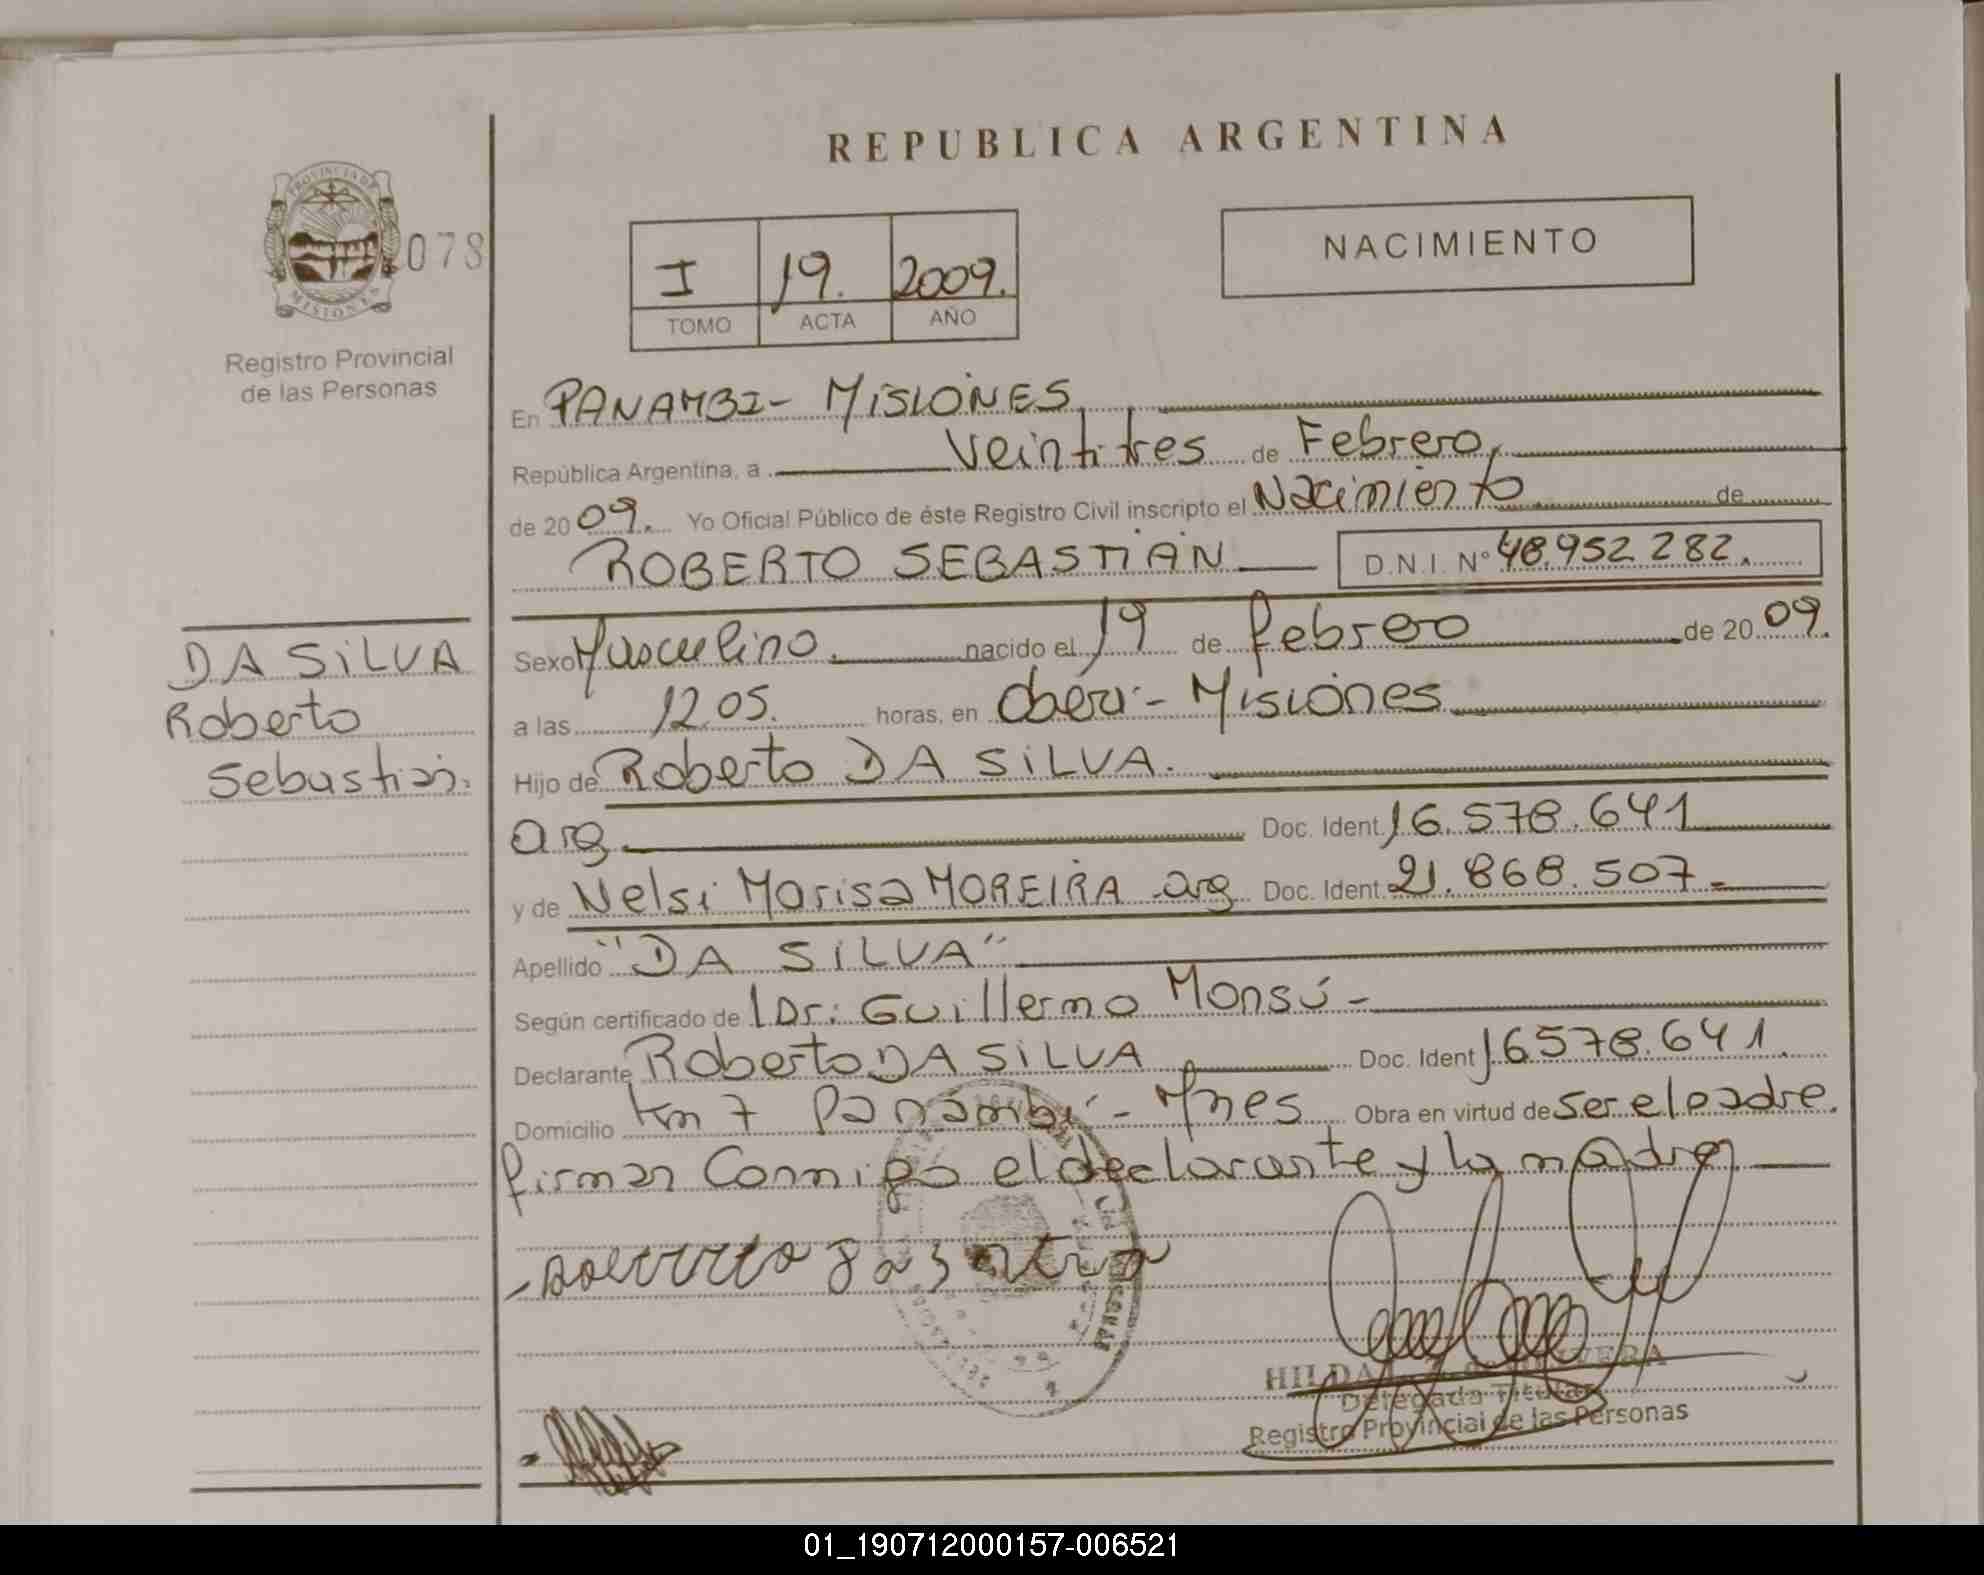 REPUBLICA ARGENTINA
PROVINCIA DE
MISIONES
078
Registro Provincial
de las Personas
I 19. 2009.
TOMO ACTA AÑO
NACIMIENTO
En PANAMBI - MISIONES
República Argentina, a veintitres de Febrero,
de 2009. Yo Oficial Público de éste Registro Civil inscripto el Nacimiento de
ROBERTO SEBASTIAN D.N.I. Nº 48.952.282.
DA SILVA
Roberto
Sebastian.
Sexo Masculino. nacido el 19 de febrero de 2009.
a las 12.05. horas, en Oberá - Misiones
Hijo de Roberto DA SILVA.
arg. Doc. Ident. 16.578.641
y de Nelsi Marisa MOREIRA arg Doc. Ident. 21.868.507-
Apellido "DA SILVA"
Según certificado de Dr: Guillermo Monsú -
Declarante Roberto DA SILVA Doc. Ident 16578.641.
Domicilio Km 7 Panambí - Mnes Obra en virtud de ser el padre.
firman Conmigo el declarante y la madre
HILDA
Delegada Titular
Registro Provincial de las Personas
01_190712000157-006521